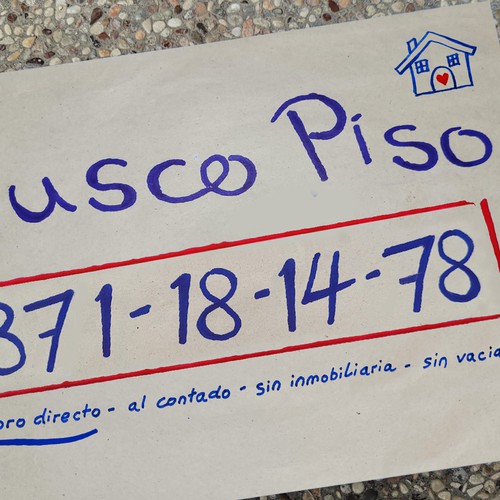 usco Piso
871-18-14-78
pro directo - al contado - sin inmobiliaria - sin vacia